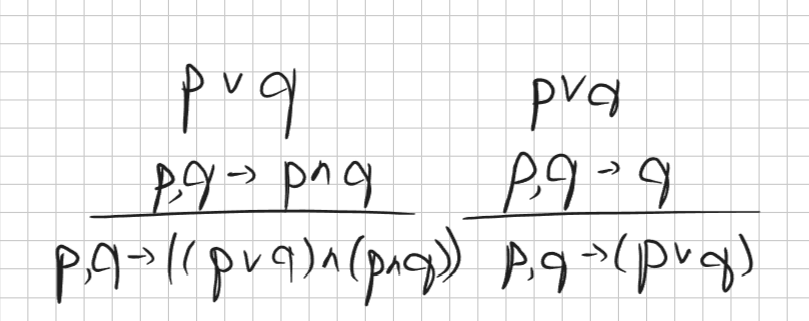 p ∨ q
p,q → p ∧ q
p,q → ((p ∨ q) ∧ (p ∧ q))
p ∨ q
p,q → q
p,q → (p ∨ q)